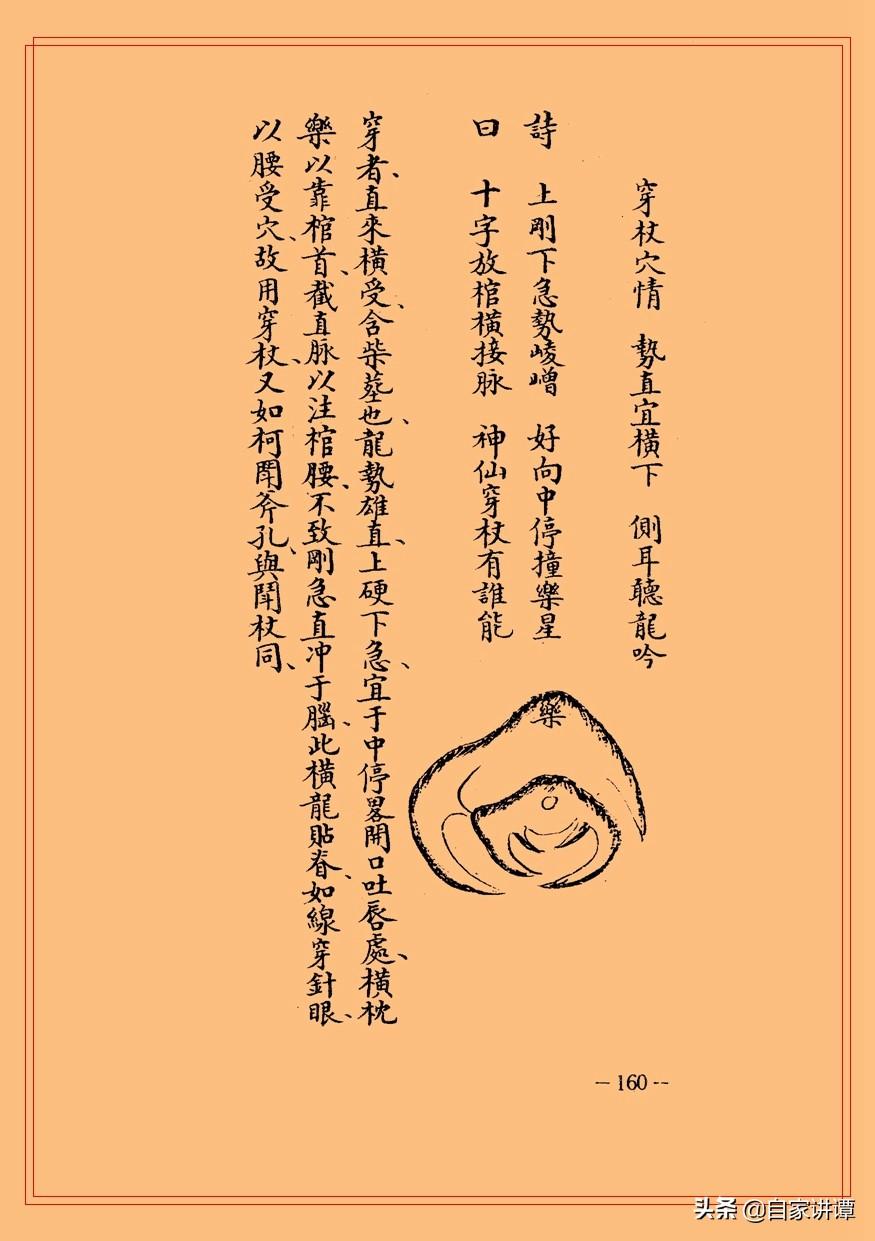 穿杖穴情　勢直宜橫下　側耳聽龍吟
詩　上剛下急勢崚嶒　好向中停撞樂星
曰　十字放棺橫接脉　神仙穿杖有誰能
穿者、直來橫受、含柴葬也、龍勢雄直、上硬下急、宜于中停畧開口吐唇處、橫枕
樂以靠棺首、截直脉以注棺腰、不致剛急直冲于腦、此橫龍貼脊、如線穿針眼、
以腰受穴、故用穿杖、又如柯鬪斧孔、與鬪杖同、
樂
- 160 --
头条 @自家讲谭